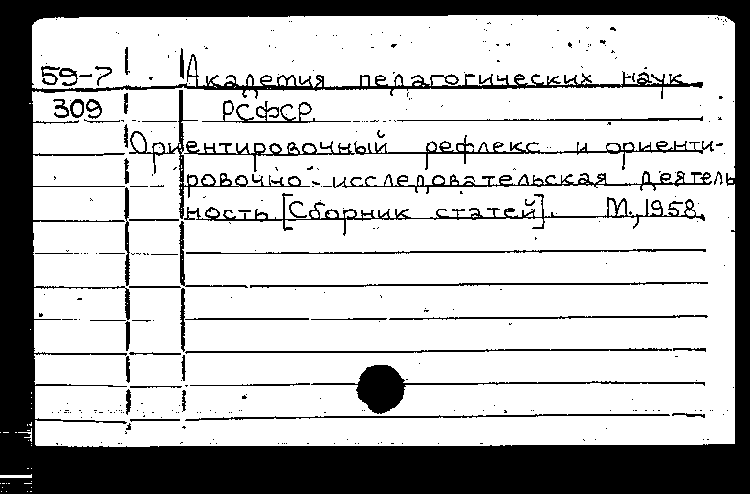 59-7 Академия педагогических наук
309 РСФСР.
Ориентировочный рефлекс и ориенти-
ровочно-исследовательская деятель
ность [Сборник статей]. М., 1958.